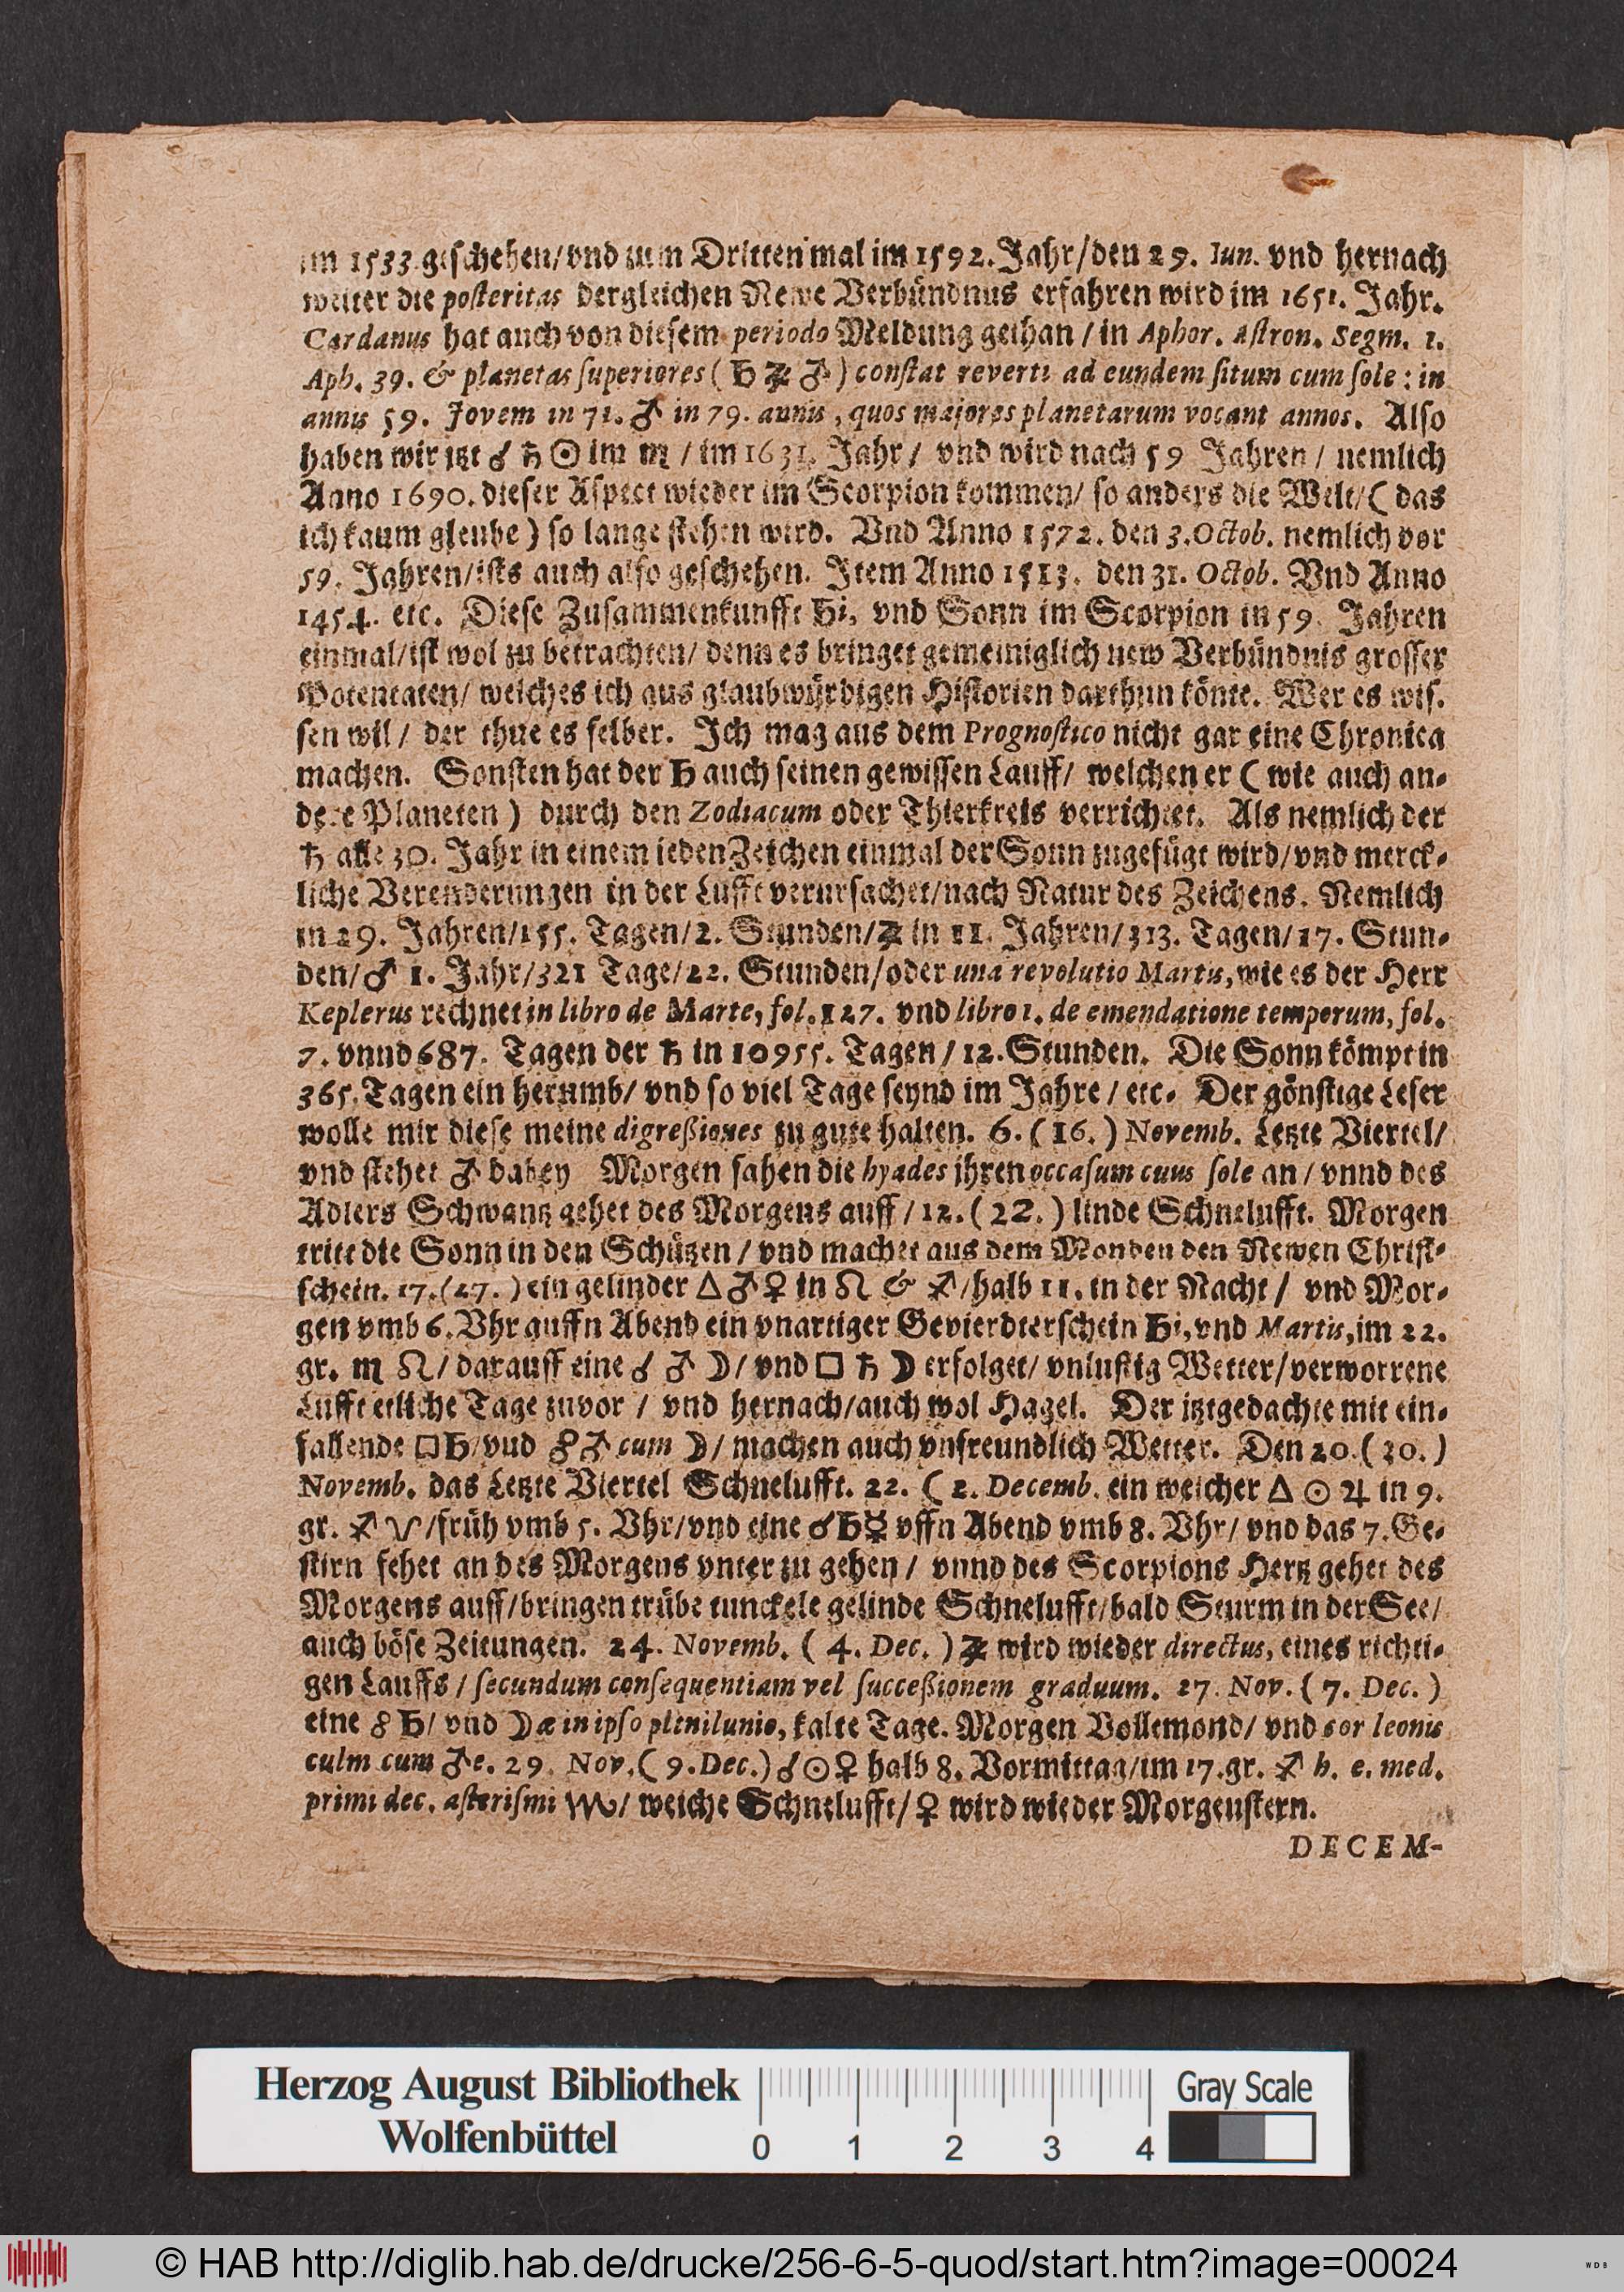 im 1533. geschehen/vnd zum Dritten mal im 1592. Jahr/den 29. Iun. vnd hernach
weiter die posteritas dergleichen Newe Verbündnus erfahren wird im 1651. Jahr.
Cardanus hat auch von diesem periodo Meldung gethan / in Aphor. Astron. Segm. 1.
Aph. 39. & planetas superiores ( ♄ ♃ ♂ ) constat reverti ad eundem situm cum sole : in
annis 59. Jovem in 71. ♂ in 79. annis, quos majores planetarum vocant annos. Also
haben wir itzt ☌ ♄ ☉ im ♏ / im 1631. Jahr / vnd wird nach 59 Jahren / nemlich
Anno 1690. dieser Aspect wieder im Scorpion kommen/ so anders die Welt/ ( das
ich kaum gleube ) so lange stehen wird. Vnd Anno 1572. den 3. Octob. nemlich vor
59. Jahren/ists auch also geschehen. Item Anno 1513. den 31. Octob. Vnd Anno
1454. etc. Diese Zusammenkunfft ♄i, vnd Sonn im Scorpion in 59. Jahren
einmal/ist wol zu betrachten/ denn es bringet gemeiniglich new Verbündnis grosser
Potentaten/ welches ich aus glaubwürdigen Historien darthun könte. Wer es wis-
sen wil / der thue es selber. Ich mag aus dem Prognostico nicht gar eine Chronica
machen. Sonsten hat der ♄ auch seinen gewissen Lauff/ welchen er ( wie auch an-
dere Planeten ) durch den Zodiacum oder Thierkreis verrichtet. Als nemlich der
♄ alle 30. Jahr in einem ieden Zeichen einmal der Sonn zugefügt wird/vnd merck-
liche Verenderungen in der Lufft verursachet/nach Natur des Zeichens. Nemlich
in 29. Jahren/155. Tagen/2. Stunden/♃ in 11. Jahren/313. Tagen/17. Stun-
den/♂ 1. Jahr/321 Tage/22. Stunden/oder una revolutio Martis, wie es der Herr
Keplerus rechnet in libro de Marte, fol. 127. vnd libro 1. de emendatione temporum, fol.
7. vnnd 687. Tagen der ♄ in 10955. Tagen / 12. Stunden. Die Sonn kömpt in
365. Tagen ein herumb/ vnd so viel Tage seynd im Jahre / etc. Der gönstige Leser
wolle mir diese meine digreßiones zu gute halten. 6. ( 16. ) Novemb. Letzte Viertel/
vnd stehet ♂ dabey Morgen fahen die hyades ihren occasum cum sole an / vnnd des
Adlers Schwantz gehet des Morgens auff / 12. ( 22. ) linde Schnelufft. Morgen
tritt die Sonn in den Schützen / vnd machet aus dem Monden den Newen Christ-
schein. 17. (27. ) ein gelinder △ ♂ ♀ in ♌ & ♐ /halb 11. in der Nacht / vnd Mor-
gen vmb 6. Vhr auffn Abend ein vnartiger Gevierdterschein ♄i, vnd Martis, im 22.
gr. ♏ ♌ / darauff eine ☌ ♂ ☽ / vnd □ ♄ ☽ erfolget/ vnlustig Wetter/verworrene
Lufft etliche Tage zuvor / vnd hernach/auch wol Hagel. Der itztgedachte mit ein-
fallende □ ♄/vnd ☍ ♂ cum ☽/ machen auch vnfreundlich Wetter. Den 20. ( 30. )
Novemb. das Letzte Viertel Schnelufft. 22. ( 2. Decemb. ein weicher △ ☉ ♃ in 9.
gr. ♐ ♈ /früh vmb 5. Vhr/vnd eine ☌ ♄ ☿ vffn Abend vmb 8. Vhr/ vnd das 7. Ge-
stirn fehet an des Morgens vnter zu gehen / vnnd des Scorpions Hertz gehet des
Morgens auff/bringen trübe tunckele gelinde Schnelufft/bald Sturm in der See/
auch böse Zeitungen. 24. Novemb. ( 4. Dec. ) ♃ wird wieder directus, eines richti-
gen Lauffs / secundum consequentiam vel succeßionem graduum. 27. Nov. ( 7. Dec. )
eine ☍ ♄/ vnd ☽æ in ipso plenilunio, kalte Tage. Morgen Vollemond/ vnd cor leonis
culm cum ♂e. 29. Nov. ( 9. Dec.) ☌ ☉ ♀ halb 8. Vormittag/im 17. gr. ♐ h. e. med.
primi dec. asterismi ♏/ weiche Schnelufft/ ♀ wird wieder Morgenstern.
DECEM-
Herzog August Bibliothek
Wolfenbüttel
0 1 2 3 4
Gray Scale
© HAB http://diglib.hab.de/drucke/256-6-5-quod/start.htm?image=00024
WDB